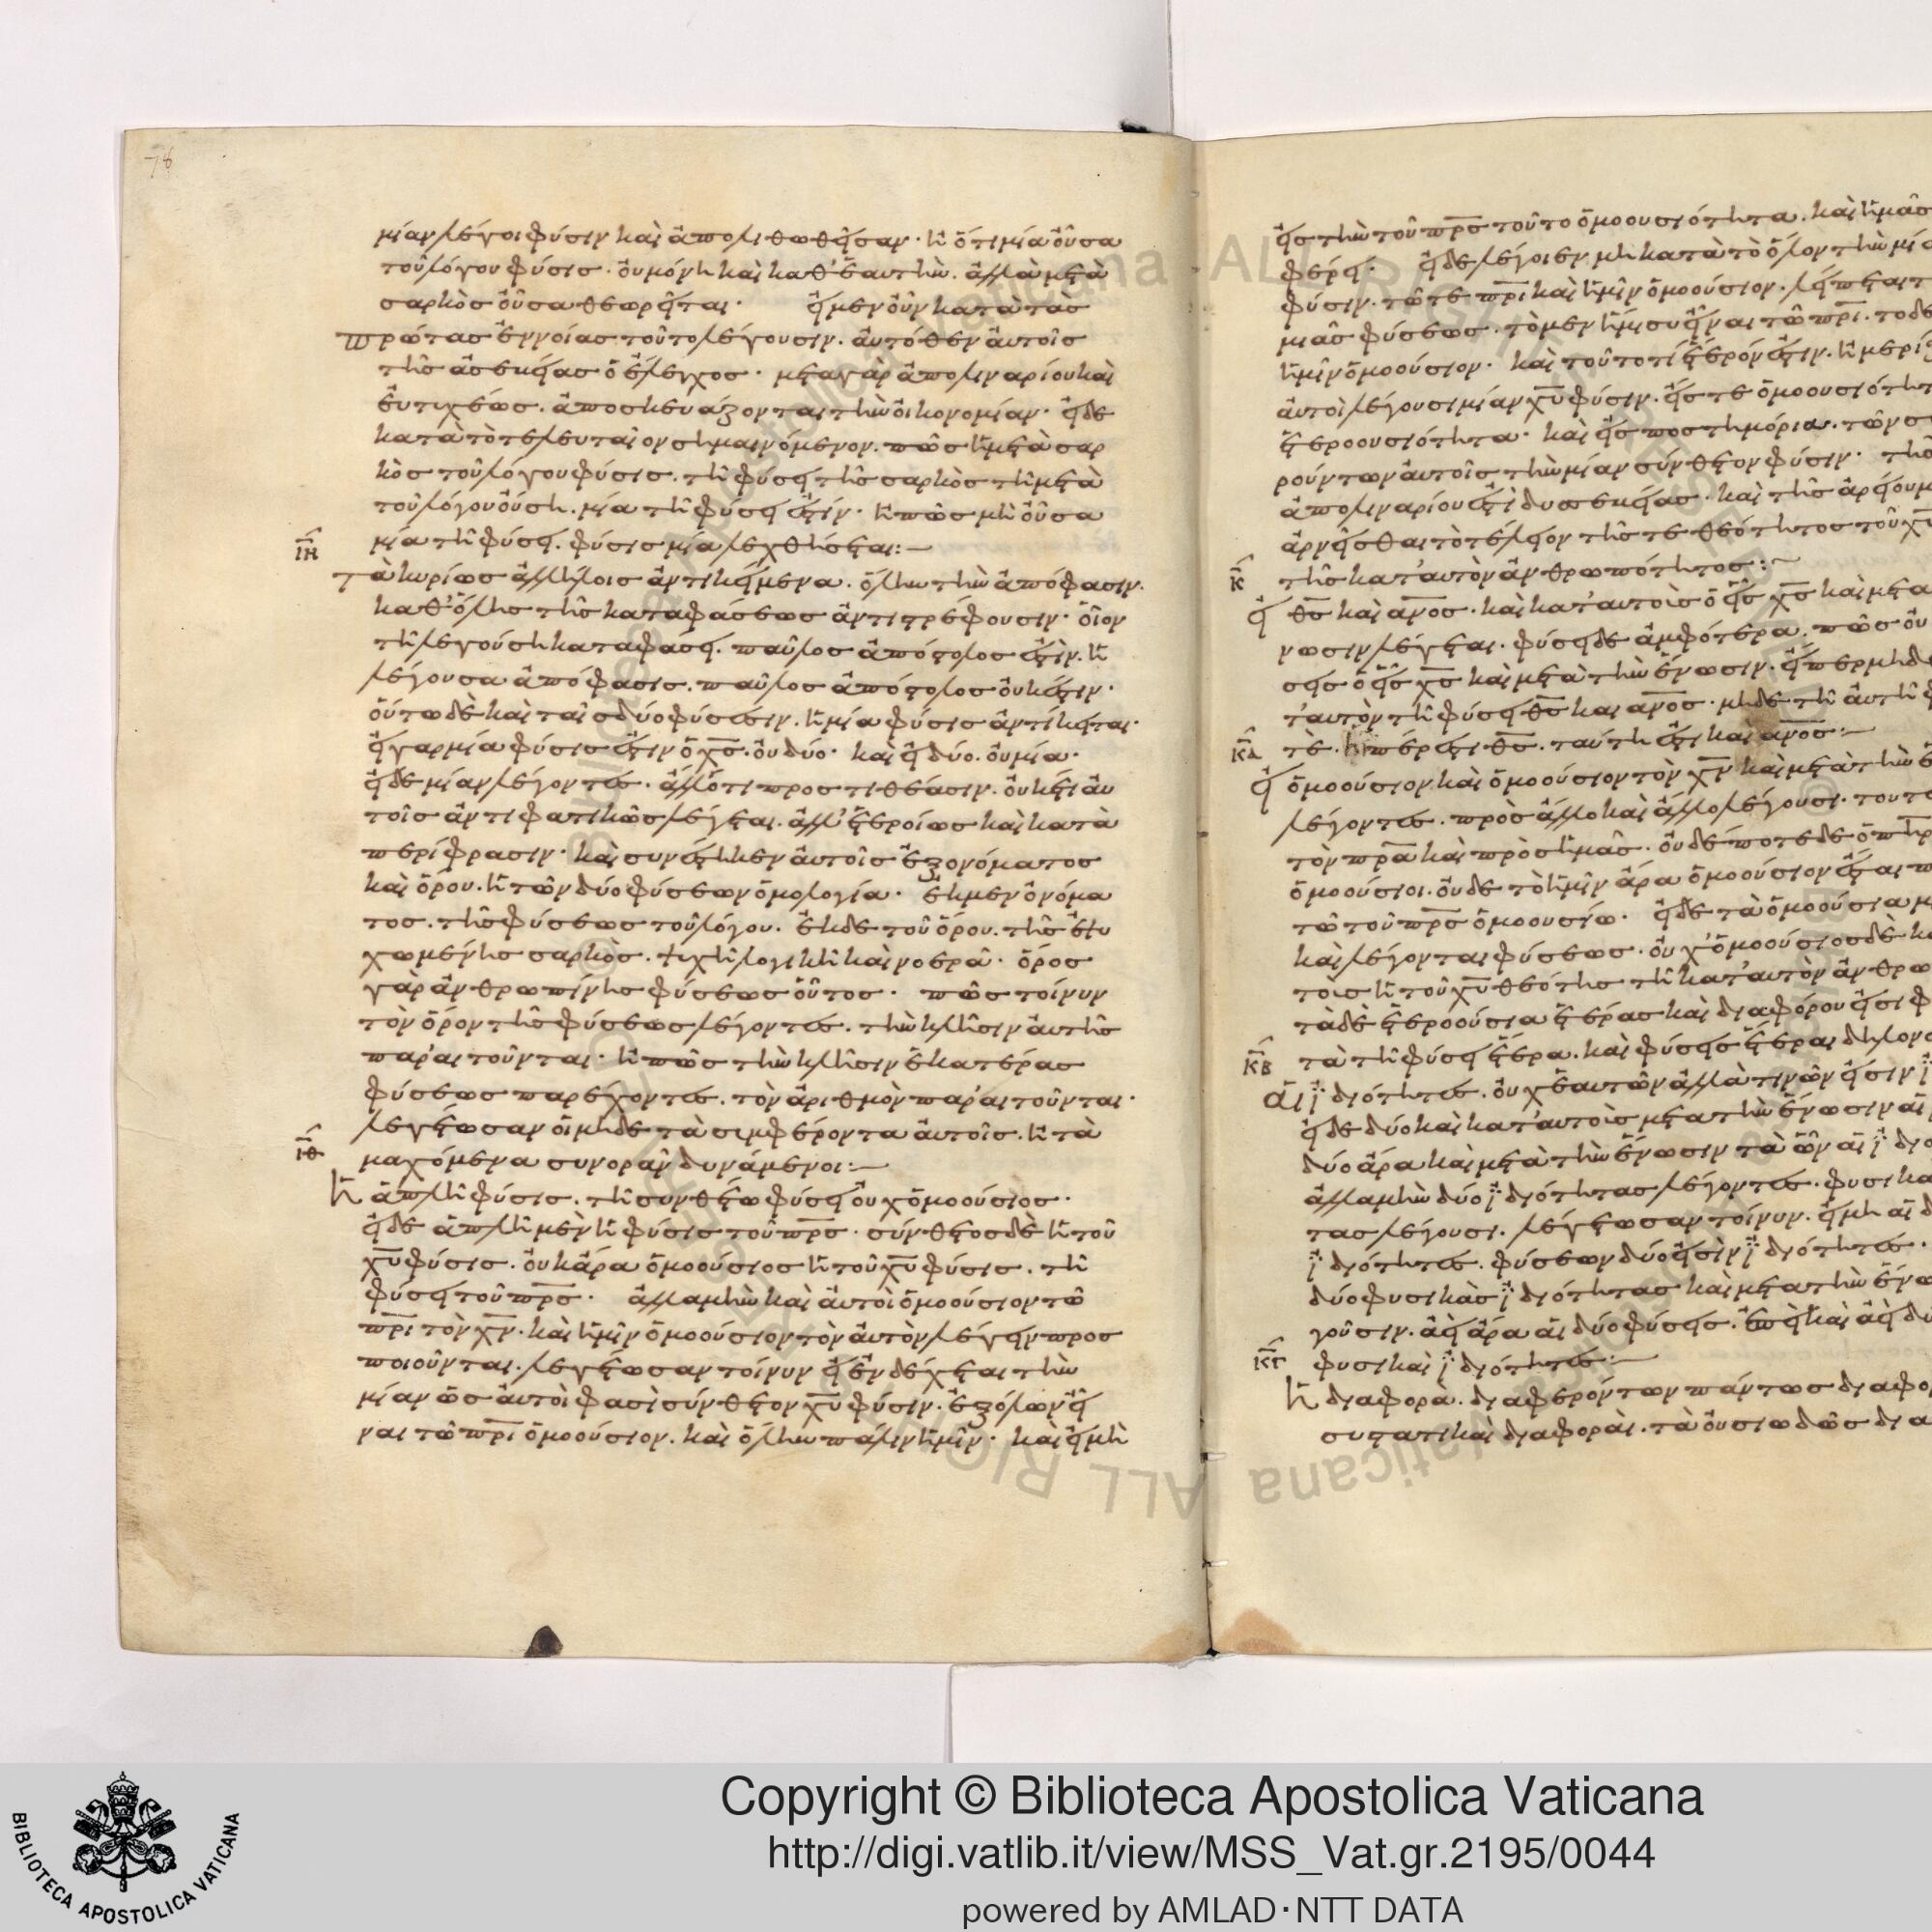 78
μίαν λέγοι φύσιν καὶ ἀπολιθωθεῖσαν· ἢ ὅτι μία οὖσα
τοῦ λόγου φύσις· οὐ μόνη καὶ καθ' ἑαυτὴν. ἀλλὰ μετὰ
σαρκὸς οὖσα θεωρεῖται· εἰ μεν οὖν κατὰ τὰς
πρώτας ἐννοίας τοῦτο λέγουσιν. αὐτόθεν αὐτοῖς
τῆς ἀσεβείας ὁ ἔλεγχος· μετα γὰρ ἀπολιναρίου καὶ
εὐτιχέως. ἀποσκευάζονται τὴν οἰκονομίαν· εἰ δε
κατὰ τὸ τελευταῖον σημαινόμενον. πῶς ἡ μετὰ σαρ
κὸς τοῦ λόγου φύσις. τῆ φύσει τῆς σαρκὸς τῆ μετὰ
τοῦ λόγου οὔση. μία τῆ φύσει ἐστίν· ἢ πῶς μὴ οὖσα
ιη μία τῆ φύσει. φύσις μία λεχθήσεται:—
τὰ κυρίως ἀλλήλοις ἀντικείμενα. ὅλην τὴν ἀπόφασιν.
καθ' ὅλης τῆς καταφάσεως ἀντιστρέφουσιν· οἷον
τῆ λεγούση καταφάσει. παῦλος ἀπόστολος ἐστὶν. ἡ
λέγουσα ἀπόφασις. παῦλος ἀπόστολος οὐκ ἔστιν·
οὕτω δὲ καὶ ταῖς δύο φύσεσιν. ἡ μία φύσις ἀντίκειται·
εἰ γαρ μία φύσις ἐστὶν ὁ χς. οὐ δύο· καὶ εἰ δύο. οὐ μία·
εἰ δε μίαν λέγοντες. ἀλλ' ὅτι προστιθέασιν. οὐκέτι αὐ
τοῖς ἀντιφατικῶς λέγεται. ἀλλ' ἑτεροίως καὶ κατὰ
περίφρασιν· καὶ συνέστηκεν αὐτοῖς ἐξ ὀνόματος
καὶ ὅρου. ἡ τῶν δύο φύσεων ὁμολογία· ἐκ μεν ὀνόμα
τος. τῆς φύσεως τοῦ λόγου. ἐκ δε τοῦ ὅρου. τῆς ἐψυ
χωμένης σαρκὸς. ψυχῆ λογικῆ καὶ νοερᾶ· ὅρος
γὰρ ἀνθρωπίνης φύσεως οὗτος· πῶς τοίνυν
τὸν ὅρον τῆς φύσεως λέγοντες. τὴν κλῆσιν αὐτῆς
παραιτοῦνται· ἢ πῶς τὴν κλῆσιν ἑκατέρας
φύσεως παρέχοντες. τὸν ἀριθμὸν παραιτοῦνται·
λεγέτωσαν οἱ μηδε τὰ συμφέροντα αὐτοῖς. ἢ τὰ
ιθ μαχόμενα συνορᾶν δυνάμενοι:—
ἡ ἁπλῆ φύσις. τῆ συνθέτω φύσει οὐχ ὁμοούσιος·
εἰ δε ἁπλῆ μὲν ἡ φύσις τοῦ πρς· σύνθετος δὲ ἡ τοῦ
χυ φύσις. οὐκ ἄρα ὁμοούσιος ἡ τοῦ χυ φύσις. τῆ
φύσει τοῦ πρς· ἀλλα μὴν καὶ αὐτοὶ ὁμοούσιον τῶ
πρι τὸν χν. καὶ ἡμῖν ὁμοούσιον τὸν αὐτὸν λέγειν προσ
ποιοῦνται. λεγέτωσαν τοίνυν εἰ ἐνδέχεται τὴν
μίαν ὡς αὐτοὶ φασὶ σύνθετον χυ φύσιν. ἐξ ὅλων εἶ
ναι τῶ πρι ὁμοούσιον. καὶ ὅλην πάλιν ἡμῖν· καὶ εἰ μὴ
εἰς τὴν τοῦ πρς τοῦτο ὁμοουσιότητα. καὶ ἡμᾶς
φέρει· εἰ δε λέγοιεν μὴ κατὰ τὸ ὅλον τὴν
φύσιν. τῶ τε πρι καὶ ἡμῖν ὁμοούσιον. λείπεται
μιᾶς φύσεως. τὸ μεν ἥμισυ εἶναι τῶ πρι. το δε
ἡμῖν ὁμοούσιον· καὶ τοῦτο τί ἕτερόν ἐστιν. ἢ
αὐτοὶ λέγουσι μίαν χυ φύσιν. εἴς τε
ἑτεροουσιότητα· καὶ εἰς ποστημόρια. τῶν
ρούντων αὐτοῖς τὴν μίαν σύνθετον φύσιν·
ἀπολιναρίου ἐστὶ δυσσεβείας. καὶ τῆς
ἀρνεῖσθαι τὸ τέλειον τῆς τε θεότητος τοῦ χυ
κ τῆς κατ' αὐτὸν ἀνθρωπότητος:~
εἰ θς καὶ ανος. καὶ κατ' αὐτοὺς ὁ εἷς χς καὶ μετα
νωσιν λέγεται. φύσει δε ἀμφότερα. πῶς
σεις ὁ εἷς χς καὶ μετὰ τὴν ἕνωσιν. εἴπερ μηδε
ταὐτὸν τῆ φύσει θς και ανος. μηδε τῆ αὐτῆ
κα τε. ἧπέρ ἐστι θς. ταύτη ἐστὶ καὶ ανος:—
εἰ ὁμοούσιον καὶ ὁμοούσιον τὸν χν καὶ μετὰ τὴν
λέγοντες. πρὸς ἄλλο καὶ ἄλλο λέγουσι.
τὸν πρα καὶ πρὸς ἡμᾶς. οὐδέποτε δε ὁ
ὁμοούσιοι. οὐδε τὸ ἡμῖν ἄρα ὁμοούσιον ἔσται
τῶ τοῦ πρς ὁμοουσίω· εἰ δε τὰ ὁμοούσια
καὶ λέγονται φύσεως. οὐχ' ὁμοούσιος δὲ
τοις ἡ τοῦ χυ θεότης τῆ κατ' αὐτὸν
τὰ δὲ ἑτεροούσια ἑτέρας καὶ διαφόρου εἰσὶ
κβ τὰ τῆ φύσει ἕτερα. καὶ φύσεις ἕτεραι
αἱ ἰδιότητες. οὐχ ἑαυτῶν ἀλλὰ τινῶν εἰσιν
εἰ δε δύο καὶ κατ' αὐτοὺς μετα τὴν ἕνωσιν
δύο ἄρα καὶ μετὰ τὴν ἕνωσιν τὰ ὧν αἱ
ἀλλα μὴν δύο ἰδιότητας λέγοντες.
τας λέγουσι. λεγέτωσαν τοίνυν. εἰ μὴ αἱ
ἰδιότητες. φύσεων δύο εἰσὶν ἰδιότητες.
δύο φυσικὰς ἰδιότητας καὶ μετα τὴν
γοῦσιν. ἀεὶ ἄρα αἱ δύο φύσεις. ἐπεὶ καὶ ἀεὶ
κγ φυσικαὶ ἰδιότητες:—
ἡ διαφορὰ. διαφερόντων πάντως
συστατικαὶ διαφοραὶ. τὰ οὐσιωδῶς
BIBLIOTECA APOSTOLICA VATICANA
Copyright © Biblioteca Apostolica Vaticana
http://digi.vatlib.it/view/MSS_Vat.gr.2195/0044
powered by AMLAD·NTT DATA